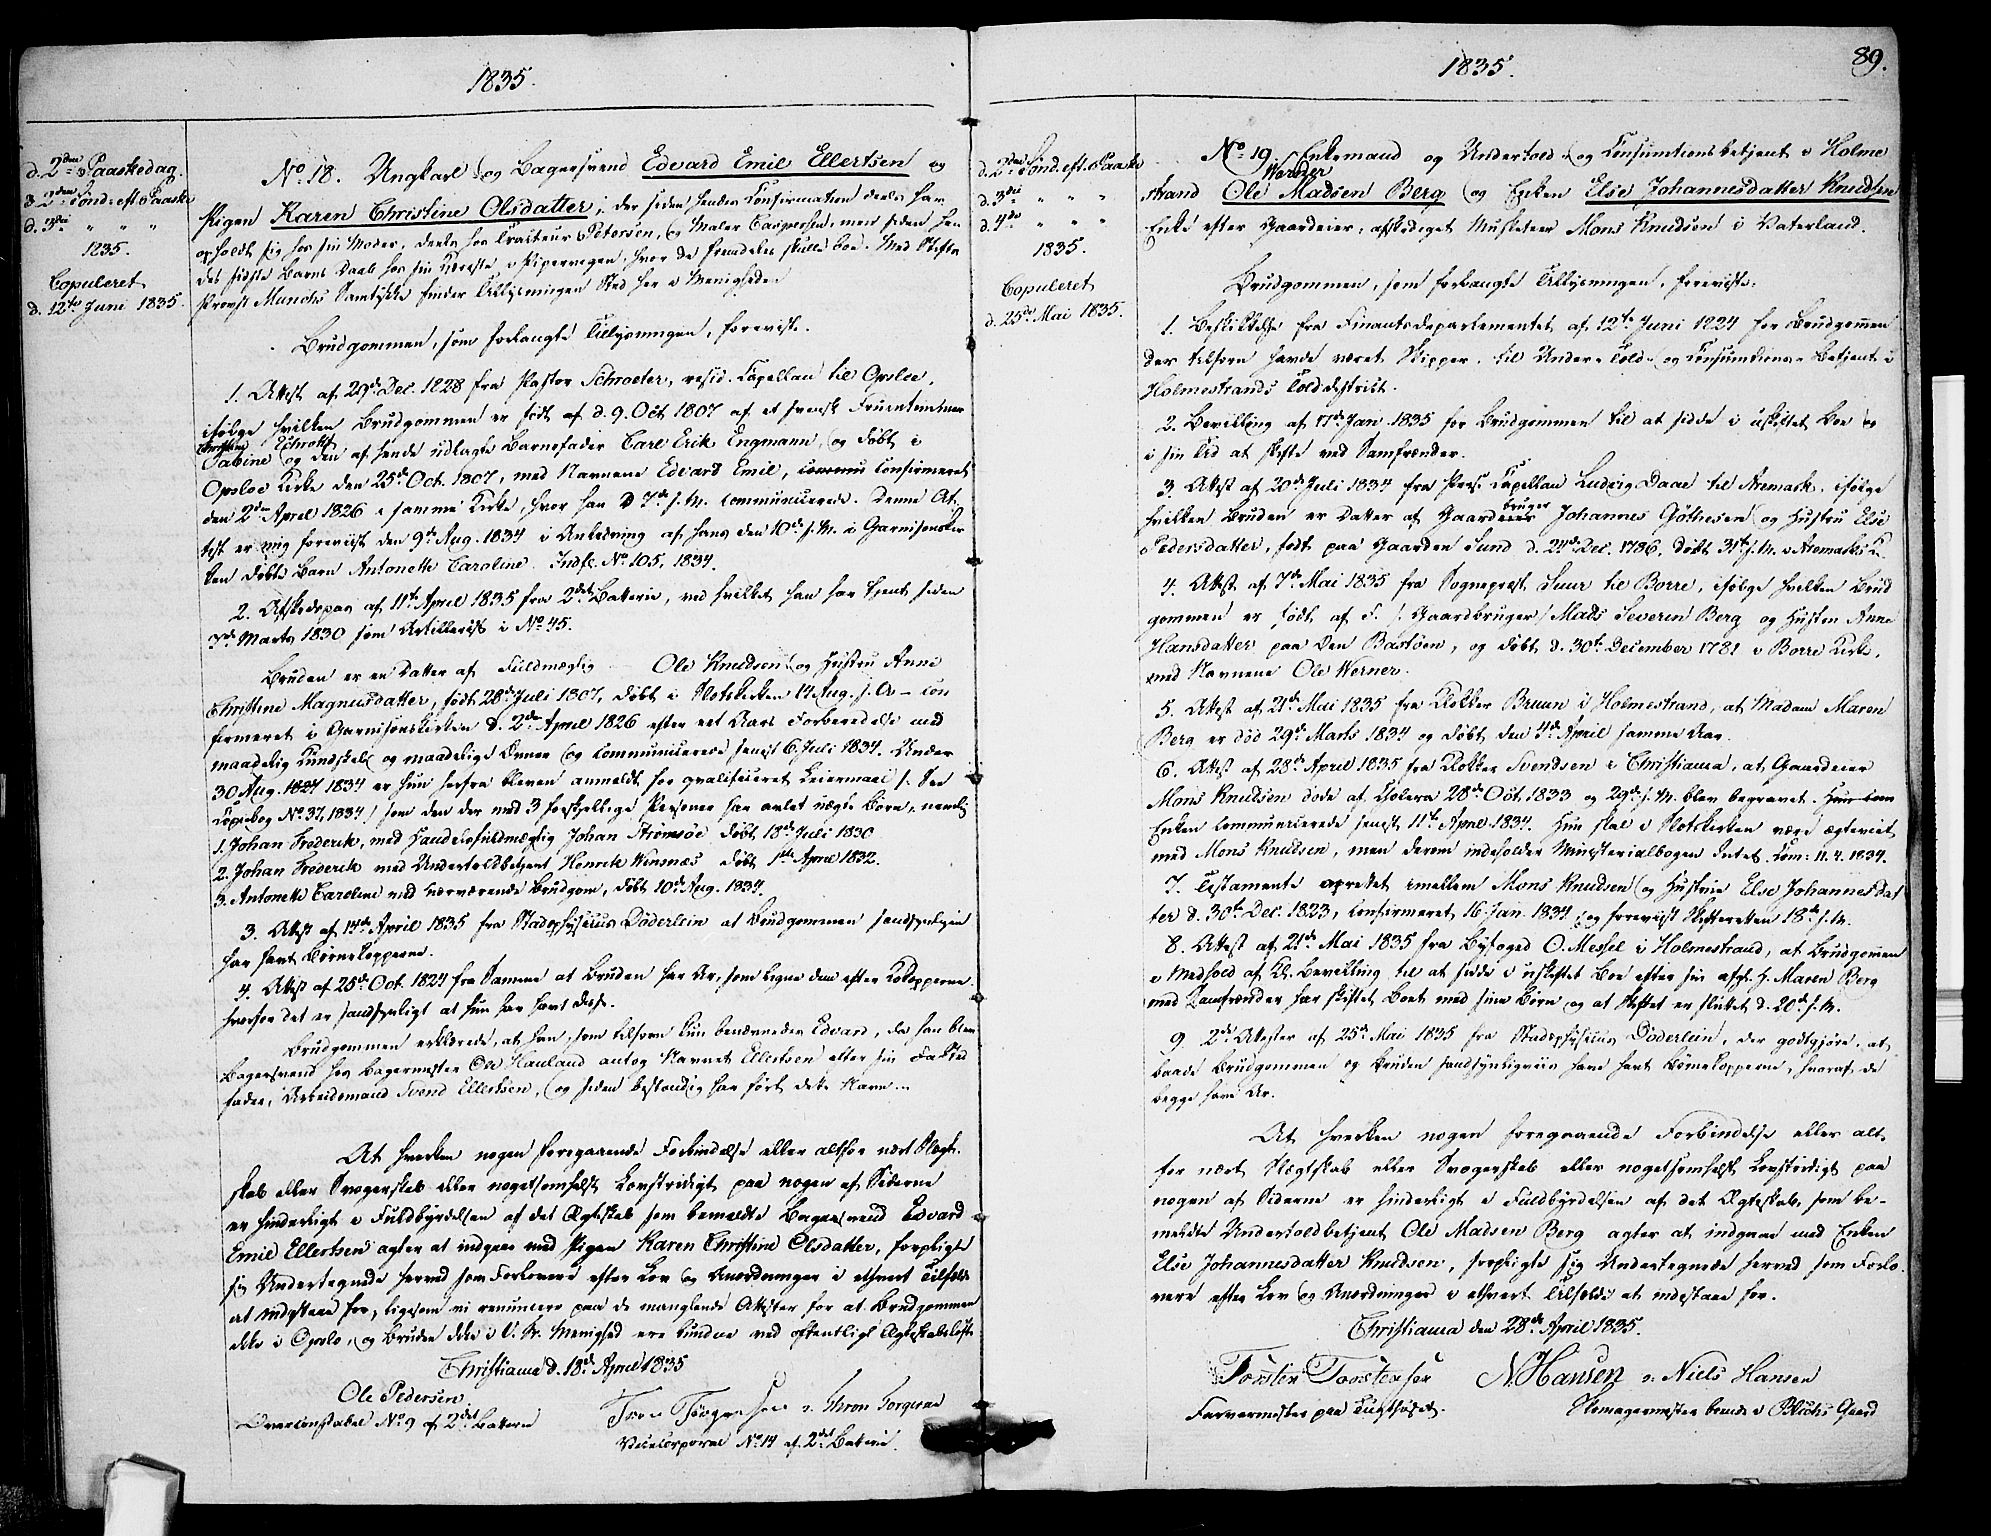 1835.
d. 2den Paaskedag.
d. 2den Sönd. eft. Paaske
d. 3die " " "
1835.
Copuleret
d. 12te Juni 1835.
No 18. Ungkarl og Bagersvend Edvard Emil Ellertsen og
Pigen Karen Christine Olsdatter, der siden hendes Confirmation deels har
opholdt sig hos sin Moder, deels hos Traiteur Petersen, og Maler Caspersen, men siden hen
des sidste Barns Daab hos sin Kjæreste i Pipervigen, hvor de fremdeles skulle boe. Med Stifts
Provst Munchs Samtykke finder Tillysningen Sted her i Menigheden
Brudgommen, som forlangte Tillysningen, foreviste.
1. Attest af 29de Dec. 1828 fra Pastor Schroeter, resid. Capellan til Opsloe,
ifölge hvilken Brudgommen er født af d. 9. Oct 1807 af et svensk Fruentimmer
Christine Schrott
Sabine og den af hende udlagte Barnefader Carl Erik Engmann, og døbt i
Opsloe Kirke den 25de Oct. 1807, med Navnene Edvard Emil, commu confirmeret
den 2den April 1826 i samme Kirke, hvor han d 7de s. M. communicerede. Denne At.
test er mig foreviist den 9de Aug. 1834 i Anledning af hans den 10de s. M. i Garnisonskir
ken døbte Barn Antonette Caroline. Indf. No 105, 1834.
2. Afskedspas af 11te April 1835 fra 2det Batterie, ved hvilket han har tjent siden
3die Marts 1830 som Artillerist i No 45.
Bruden er en Datter af Fuldmægtig Ole Knudsen og Hustru Anne
Christine Magnusdatter, født 28de Juli 1807, døbt i Slotskirken 14 Aug. s. A. - con
firmeret i Garnisonskirken d. 2den April 1826 efter eet Aars Forberedelse med
maadelig Kundskab og maadelige Evner og communicerede senest 6. Juli 1834. Under
30 Aug. 1834 1834 er hun herfra bleven anmeldt for qvalificeret Leiermaal s. See
Copiebog No 37, 1834 / som den der med 3 forskjellige Personer har avlet uægte Børn, nemlig
1. Johan Frederik, med Handelsfuldmægtig Johan Strømsöe døbt 18de Juli 1830
2. Johan Frederik med Undertoldbetjent Henrik Winsnæs døbt 1ste April 1832.
3. Antonette Caroline med nærværende Brudgom, døbt 10de Aug. 1834.
3. Attest af 14de April 1835 fra Stadsphysicus Döderlein at Brudgommen sandsynligen
har havt Börnekopperne.
4. Attest af 25de Oct. 1824 fra Samme at Bruden har Ar, som ligne dem efter Kokopperne
hvorfor det er sandsynligt at hun har havt disse.
Brudgommen erklærede, at han, som tilforn kun benævnedes Edvard, da han blev
Bagersvend hos Bagermester Ole Hauland antog Navnet Ellertsen efter sin Pleie
fader, Arbeidsmand Svend Ellertsen, og siden bestandig har ført dette Navn.-
At hverken nogen foregaaende Forbindelse eller altfor nært Slægt.
skab eller Svogerskab eller nogetsomhelst Lovstridigt paa nogen af Siderne
er hinderligt i Fuldbyrdelsen af det Ægteskab som bemeldte Bagersvend Edvard
Emil Ellertsen agter at indgaae med Pigen Karen Christine Olsdatter, forpligte
sig Undertegnede herved som Forlovere efter Lov og Anordninger i ethvert Tilfælde
at indestaae for, ligesom vi renuncere paa de manglende Attester for at Brudgommen
ikke i Opslo, og Bruden ikke i V. Fr. Menighed ere bundne ved offentligt Ægteskabsløfte
Christiania d. 18de April 1835
Ole Pedersen
Overconstabel No 9 af 2det Batterie
Tron Törgersen : Thron Torgersen
Vicecorporal No 14 af 2det Batterie.
1835.
89.
d. 2den Sönd. eft. Paaske
d. 3die " " "
d. 4de " " "
1835.
Copuleret
d. 25de Mai 1835.
No 19. Enkemand og Undertold- og Consumtionsbetjent i Holme
Werner
strand Ole Madsen Berg og Enken Else Johannesdatter Knudsen
Enke efter Gaardeier, afskediget Musketeer Mons Knudsen i Vaterland.
Brudgommen, som forlangte Tillysningen, foreviste:
1. Beskikkelse fra Finantsdepartementet af 12te Juni 1824 for Brudgommen
der tilforn havde været Skipper, til Under-Told- og Consumtions-Betjent i
Holmestrands Tolddistrict.
2. Bevilling af 17de Jan 1835 for Brudgommen til at sidde i uskiftet Boe og
i sin Tid at skifte ved Samfrender.
3. Attest af 20de Juli 1834 fra Pers. Capellan Ludvig Daae til Aremark, ifølge
bruger
hvilken Bruden er Datter af Gaardeier Johannes Göthesen og Hustru Else
Pedersdatter, født paa Gaarden Sund d. 24de Dec. 1786, døbt 31te s. M. i Aremarks K.
4. Attest af 7de Mai 1835 fra Sogneprest Suur til Borre, ifølge hvilken Brud
gommen er født af F. s. Gaardbruger / Mads Severin Berg og Hustru Anne
Hansdatter paa Øen Bastöen, og døbt d. 30te December 1781 i Borre Kirke,
med Navnene Ole Werner.
5. Attest af 21de Mai 1835 fra Klokker Bruun i Holmestrand, at Madam Maren
Berg er død 29de Marts 1834 og døbt den 4de April samme Aar.
6. Attest af 28de April 1835 fra Klokker Svendsen i Christiania, at Gaardeier
Mons Knudsen døde af Cholera 28de Oct 1833 og 29de s. M. blev begravet. Hun com
Enken communicerede senest 11te April 1834. Hun skal i Slotskirken være ægteviet
med Mons Knudsen, men derom indeholder Ministerialbogen Intet. Com: 11. 4. 1834.
7. Testamente oprettet imellem Mons Knudsen og Hustrue Else Johannesdat
ter d. 30te Dec. 1823, confirmeret 16 Jan. 1834, og foreviist Skifteretten 18de s. M.
8. Attest af 21de Mai 1835 fra Byfoged O. Messel i Holmestrand, at Brudgommen
i Medhold af Kl. Bevilling til at sidde i uskiftet Boe efter sin afg. H. Maren Berg
med Samfrænder har skiftet Boet med sine Børn og at Skiftet er sluttet d. 20de s. M.
9 2de Attester af 25de Mai 1835 fra Stadsphysicus Döderlein, der godtgjøre, at
baade Brudgommen og Bruden sandsynligviis have havt Börnekopperne, hvoraf de
begge have Ar.
At hverken nogen foregaaende Forbindelse eller alt
for nært Slægtskab eller Svogerskab eller nogetsomhelst Lovstridigt paa
nogen af Siderne er hinderligt i Fuldbyrdelsen af det Ægteskab, som be-
meldte Undertoldbetjent Ole Madsen Berg agter at indgaae med Enken
Else Johannesdatter Knudsen, forpligte sig Undertegnede herved som Forlo.
vere efter Lov og Anordninger i ethvert Tilfælde at indestaae for.
Christiania den 28de April 1835.
Torsten Torstensen
Farvermester paa Tugthuset.
N. Hansen : Niels Hansen
Skomagermester boende i Blichs Gaard